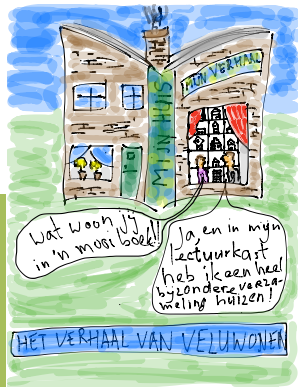 MIJN VERHAAL
MIJN HUIS
Wat woon jij
in 'n mooi boek!!
Ja, en in mijn
lectuurkast
heb ik een heel
bijzondere verza-
meling huizen!
HET VERHAAL VAN VELUWONEN